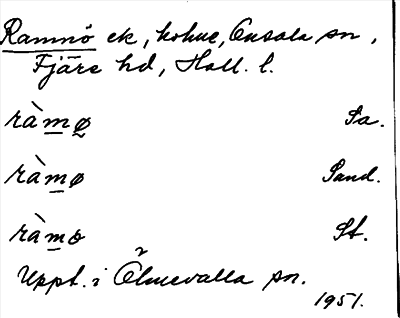 Ramnö ek, kohue, Onsala sn,
Fjäre hd, Hall. l.
ràmø Sa.
ràmø Sand.
ràmo St.
Uppt. i Ölmevalla sn.
1951.